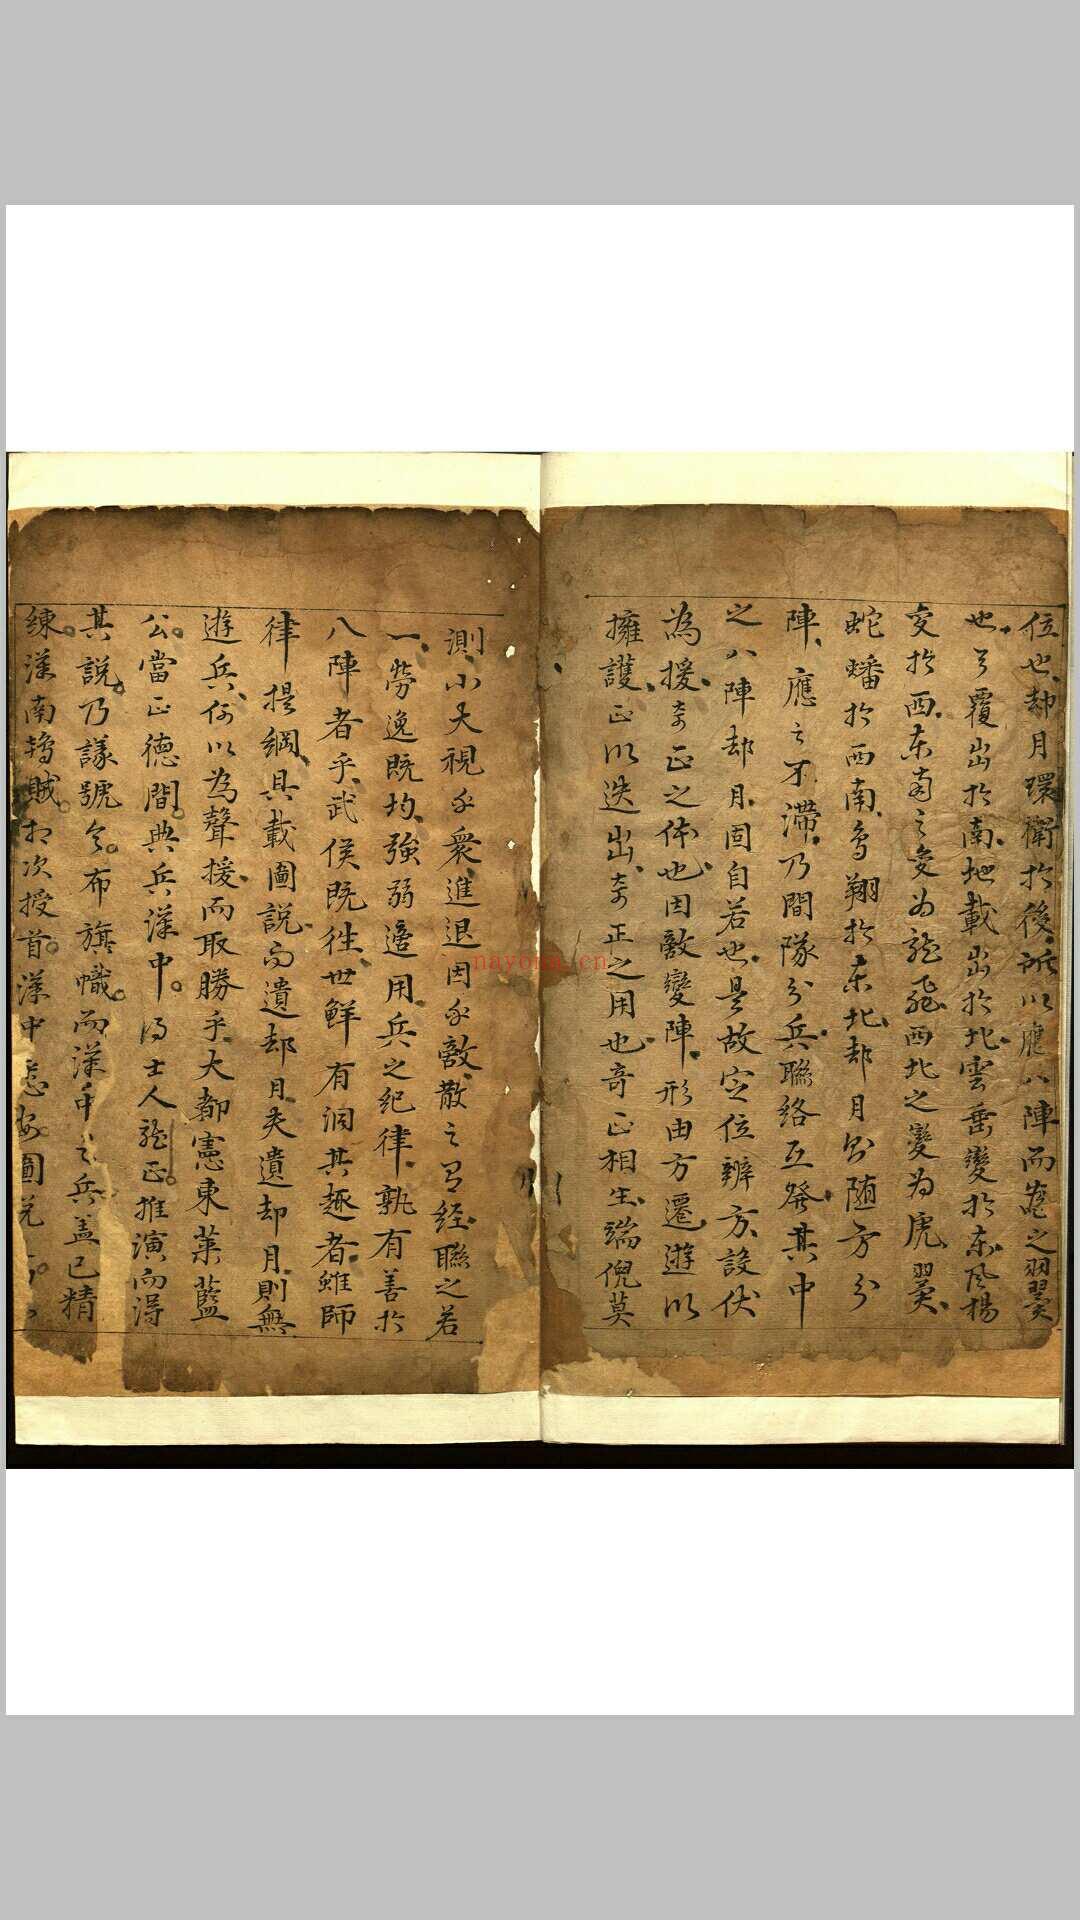 位也却月環衛於後所以應八陣而為之翼
也天覆出於南地載出於北雲垂變於東風揚
变於西东南之变为龍飛西北之變为虎翼
蛇蟠於西南鸟翔於东北却月則随方分
陣應之不滞乃間隊分兵聯络互發其中
之八陣却月固自若也是故定位辨方設伏
為援奇正之体也因敵變陣形由方遷遊以
擁護正以迭出奇正之用也奇正相生端倪莫
測小大視乎衆進退因乎敵散之有经聯之若
一劳逸既均強弱適用兵之纪律孰有善於
八陣者乎武侯既徃世鮮有洞其趣者雖師
律提綱具載圖説而遺却月夫遺却月則無
遊兵何以為聲援而取勝乎大都憲東莱藍
公當正德間典兵漢中得士人龍正推演而得
其説乃謀號令布旗幟而漢中之兵盖已精
練漢南鄠贼相次授首漢中
nayona.cn